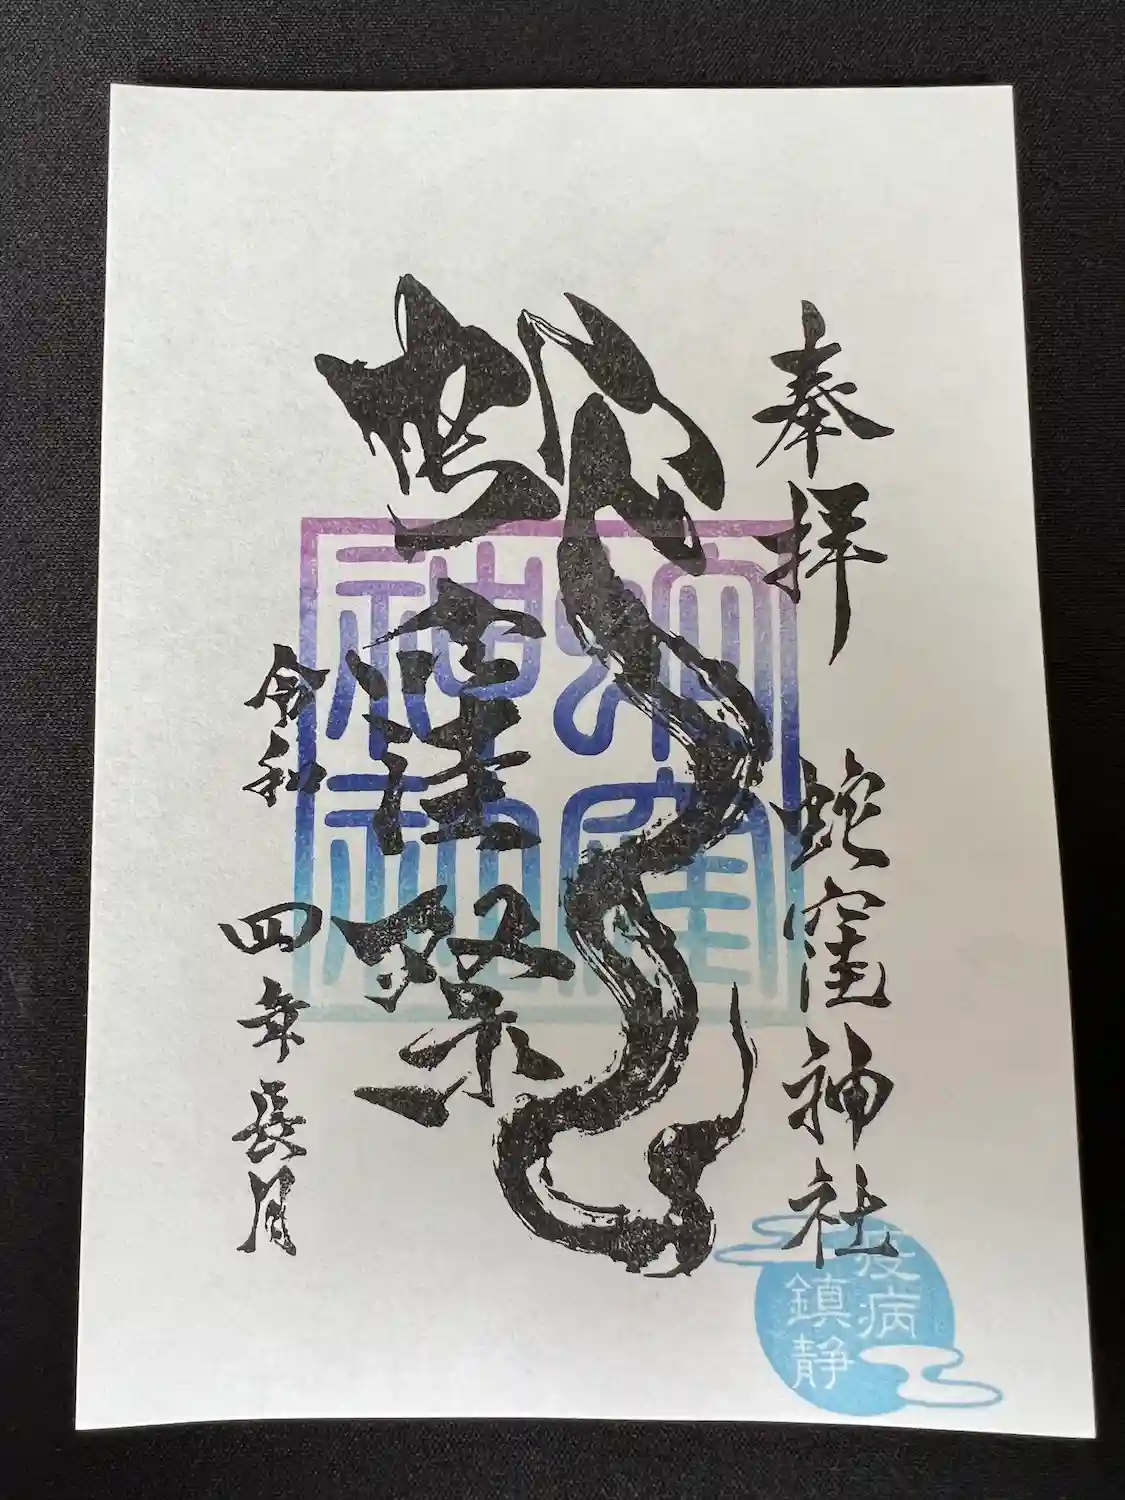 奉拝 蛇窪神社
蛇窪祭
令和四年長月
蛇窪神社
疫病
鎮静